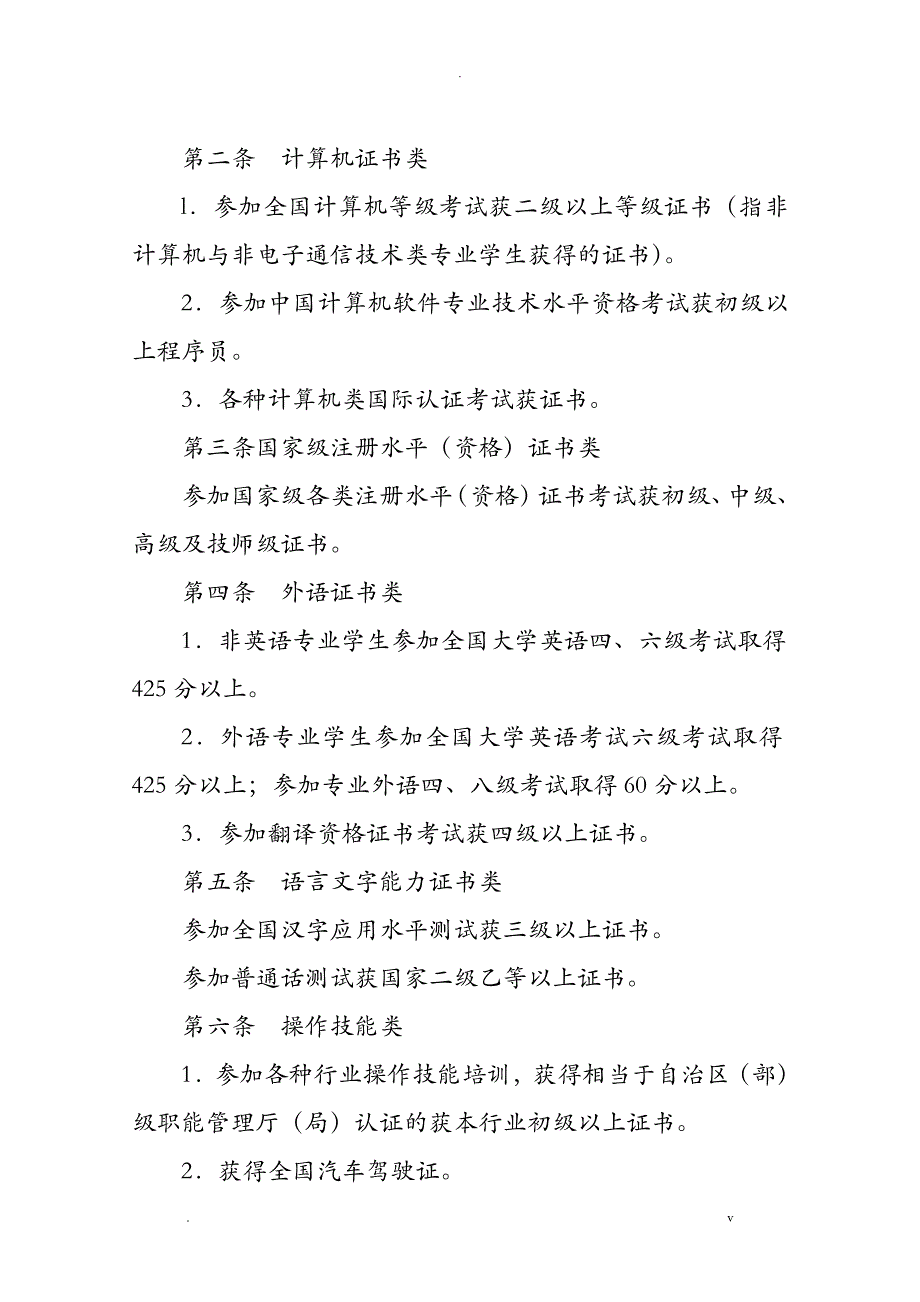 .
第二条　计算机证书类
1. 参加全国计算机等级考试获二级以上等级证书（指非
计算机与非电子通信技术类专业学生获得的证书）。
2. 参加中国计算机软件专业技术水平资格考试获初级以
上程序员。
3. 各种计算机类国际认证考试获证书。
第三条国家级注册水平（资格）证书类
参加国家级各类注册水平（资格）证书考试获初级、中级、
高级及技师级证书。
第四条　外语证书类
1. 非英语专业学生参加全国大学英语四、六级考试取得
425 分以上。
2. 外语专业学生参加全国大学英语考试六级考试取得
425 分以上；参加专业外语四、八级考试取得 60 分以上。
3. 参加翻译资格证书考试获四级以上证书。
第五条　语言文字能力证书类
参加全国汉字应用水平测试获三级以上证书。
参加普通话测试获国家二级乙等以上证书。
第六条　操作技能类
1. 参加各种行业操作技能培训，获得相当于自治区（部）
级职能管理厅（局）认证的获本行业初级以上证书。
2. 获得全国汽车驾驶证。
. v